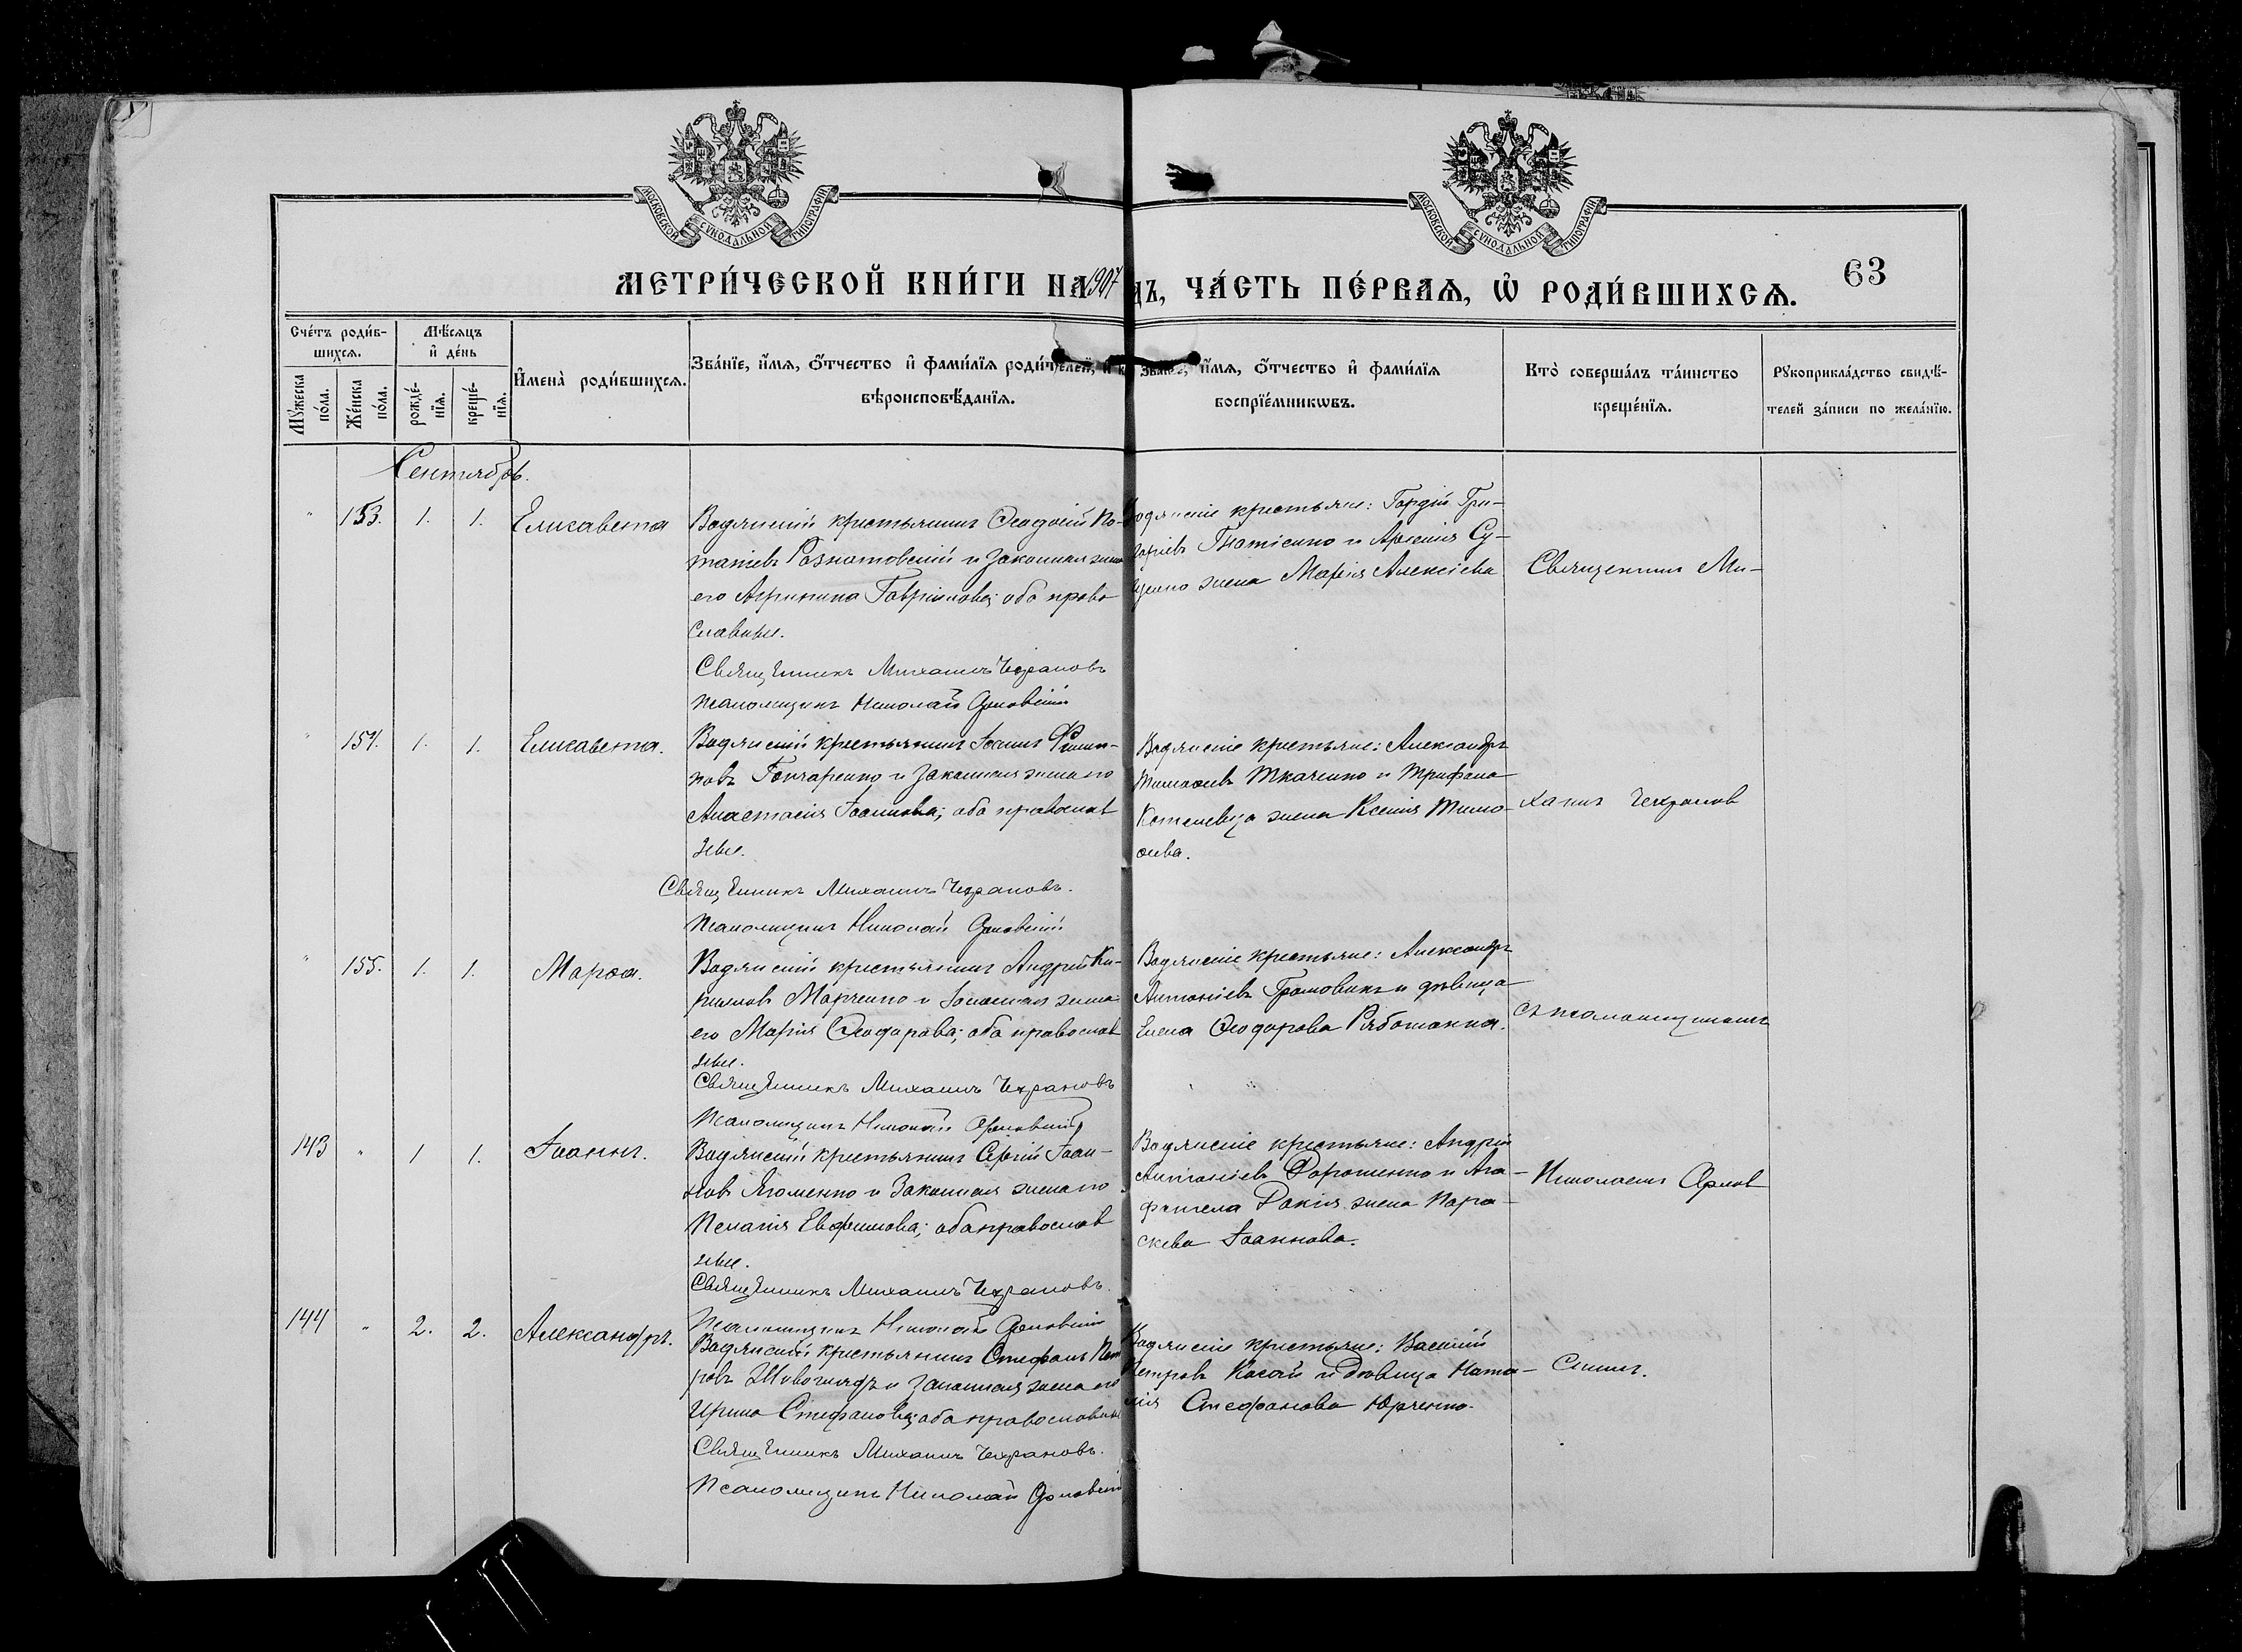 МОСКОВСКОЙ СѴНОДАЛЬНОЙ ТИПОГРАФІИ
МОСКОВСКОЙ СѴНОДАЛЬНОЙ ТИПОГРАФІИ
МЕТРИ́ЧЕСКОЙ КНИ́ГИ НА 1907 ДЪ, ЧА́СТЬ ПЕ́РВАѦ, Ѡ҆ РОДИ́ВШИХСѦ.
63
Сче́тъ роди́в-
шихсѧ.
Мꙋ́жеска по́ла.
Же́нска по́ла.
Мѣ́сѧцъ
и҆ де́нь
рожде́-
нїѧ.
креще́-
нїѧ.
И҆мена̀ роди́вшихсѧ.
Зва́нїе, и҆́мѧ, ѻ҆́тчество и҆ фами́лїѧ роди́телей, и҆ к
вѣроисповѣ́данїѧ.
Зва́нїе, и҆́мѧ, ѻ҆́тчество и҆ фами́лїѧ
воспрїе́мникѡвъ.
Кто̀ соверша́лъ та́инство
креще́нїѧ.
Рꙋкоприкла́дство свидѣ́-
телей за́писи по жела́нїю.
Сентябрь.
" 153. 1. 1. Елисавета
Водянскій крестьянинъ Ѳеодосій По-
таніевъ Рознотовскій и законная жена
его Агрипина Гавріилова; оба право
славные.
Священникъ Михаилъ Чехрановъ
Псаломщикъ Николай Орловскій
Водянскіе крестьяне: Гордій Гри-
горіевъ Гнатіенко и Арсенія Су-
жена Марія Алексіева
Священникъ Ми-
" 154. 1. 1. Елисавета.
Водянскій крестьянинъ Іоаннъ Филип-
повъ Гончаренко и законная жена его
Анастасія Іоаннова; оба православ
ные.
Священникъ Михаилъ Чехрановъ.
Псаломщикъ Николай Орловскій
Водянскіе крестьяне: Александръ
Тимоѳеевъ Ткаченко и Трифона
жена Ксенія Тимо-
ѳеева.
хаилъ Чехранов
" 155. 1. 1. Марѳа.
Водянскій крестьянинъ Андрей Ки-
риловъ Марченко и законная жена
его Марія Ѳеодорова; оба православ
ные.
Священникъ Михаилъ Чехрановъ
Псаломщикъ Николай Орловскій
Водянскіе крестьяне: Александръ
Антоніевъ Громовикъ и дѣвица
Елена Ѳеодорова
съ псаломщикомъ
143 " 1 1. Іоаннъ.
Водянскій крестьянинъ Сергій Іоан-
новъ Ягоменко и Законная жена его
Пелагія Евфимова; оба православ
ные.
Священникъ Михаилъ Чехрановъ.
Псаломщикъ Николай Орловскій
Водянскіе крестьяне: Андрій
Антоніевъ Дорошенко и Ага-
фангела жена Пара-
скева Іоаннова.
Николаемъ Орлов
144 " 2. 2. Александръ.
Водянскій крестьянинъ Стефанъ Пет
ровъ Живоглядъ и законная жена его
Ирина Стефанова; оба православные
Священникъ Михаилъ Чехрановъ.
Псаломщикъ Николай Орловскій
Водянскіе крестьяне: Василій
Петровъ Косой и Дѣвица Ната-
лія Стефанова Юрченко.
Скимъ.